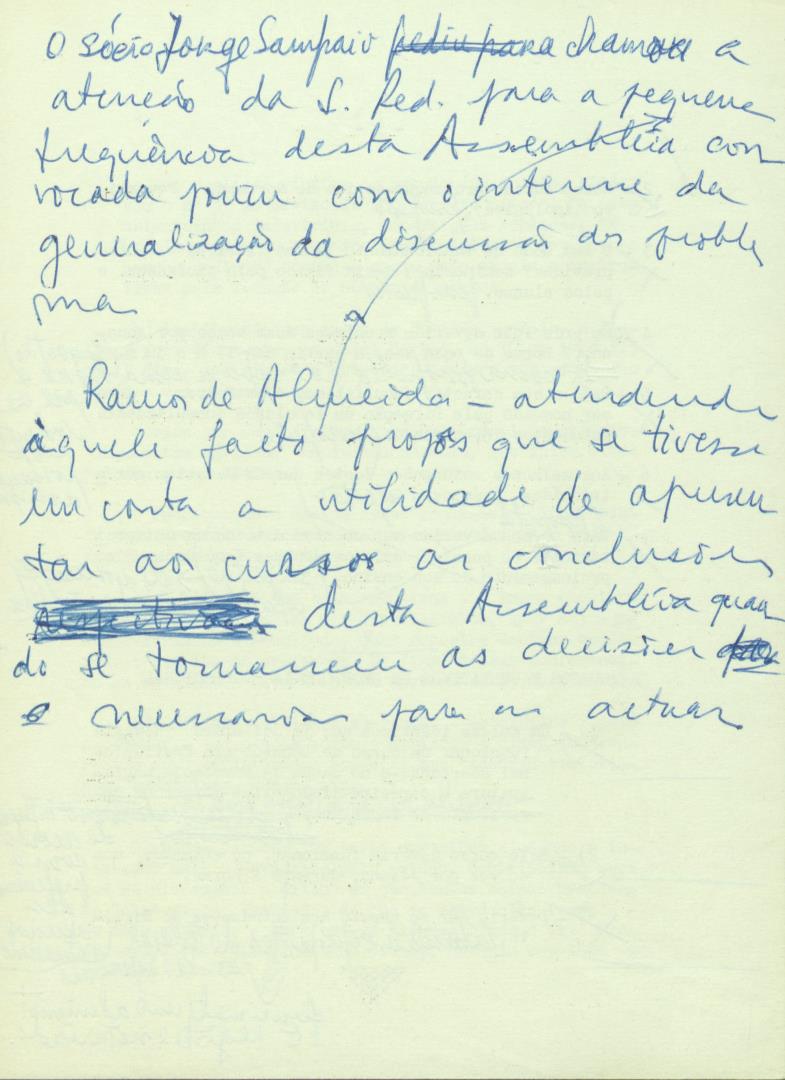 O sócio Jorge Sampaio pediu para chamou a
atenção da S. Red. para a pequena
frequência desta Assembléia con
vocada porém com o interesse da
generalização da discussão do proble
ma
Ramos de Almeida – atendendo
àquele facto propôs que se tivesse
em conta a utilidade de apresen
tar aos cursos as conclusões
desta Assembléia quan
do se tomarem as decisões
necessárias para os actuar